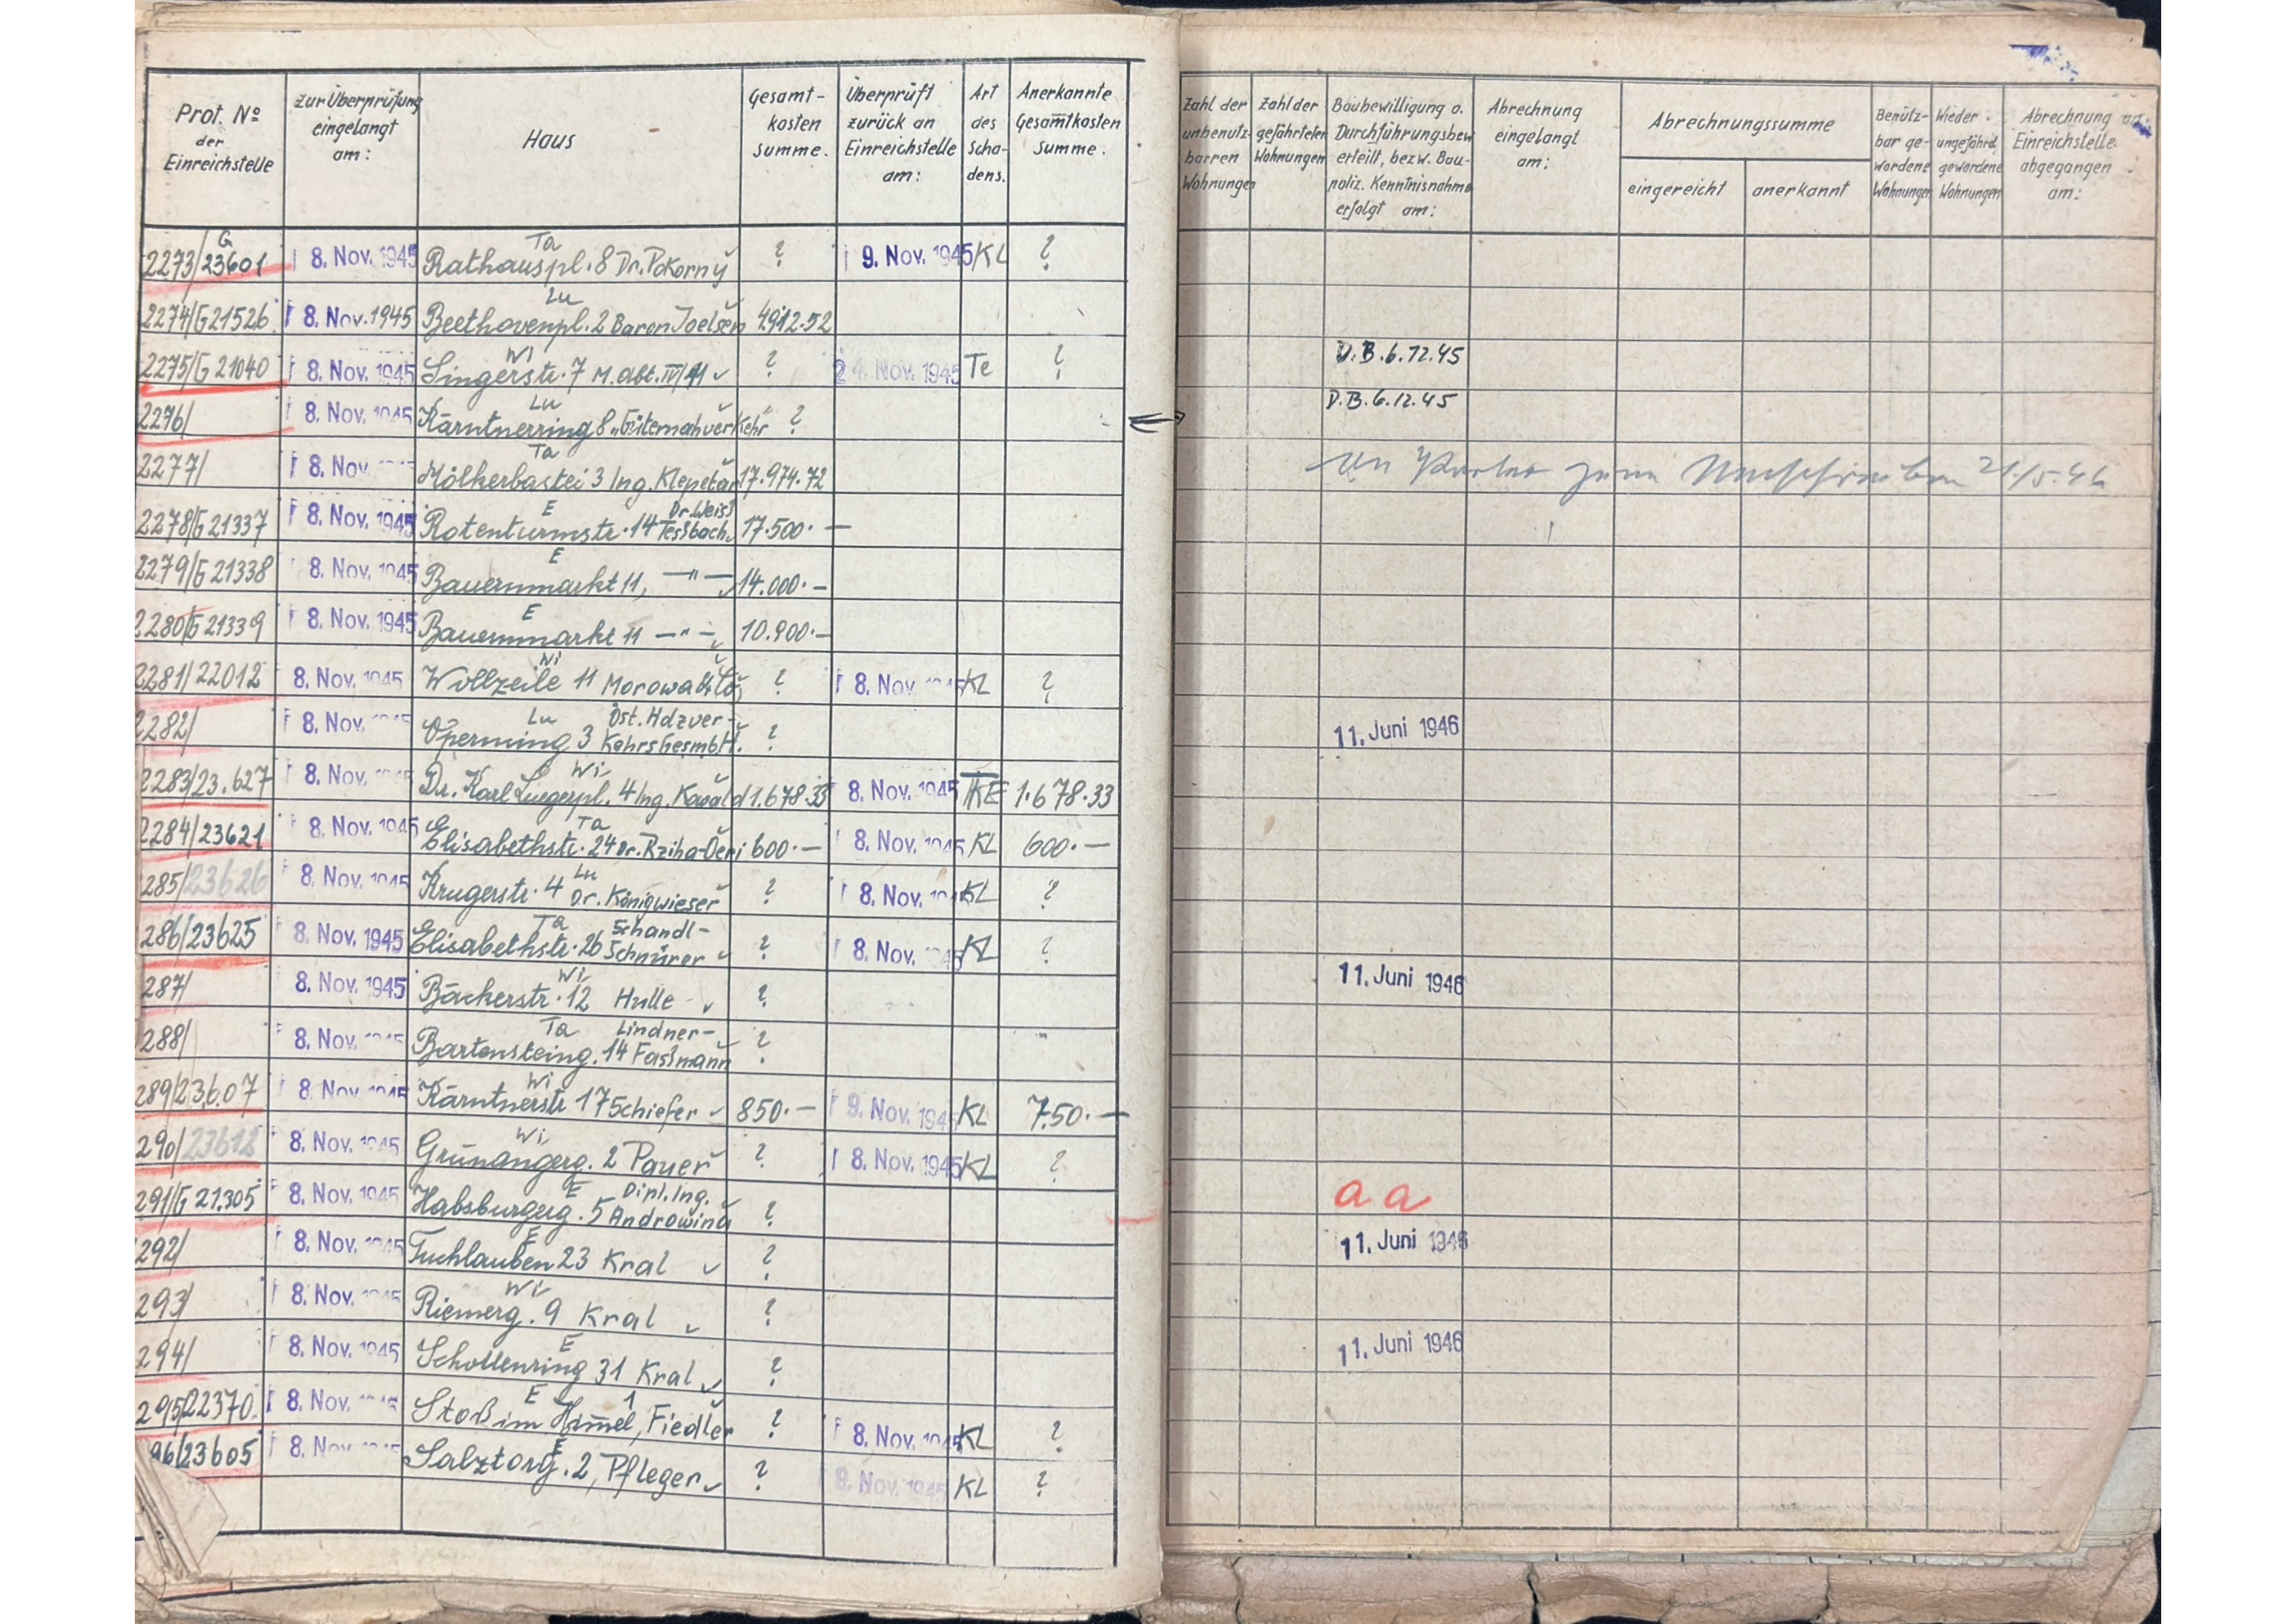 Prot. No der Einreichstelle | zur Überprüfung eingelangt am: | Haus | Gesamt-kosten summe. | Überprüft zurück an Einreichstelle am: | Art des Scha-dens. | Anerkannte Gesamtkosten summe. | Zahl der unbenutz-barren Wohnungen | Zahl der gefährteten Wohnungen | Baubewilligung o. Durchführungsbew. erteilt, bezw. Bau-poliz. Kenntnisnahme erfolgt am: | Abrechnung eingelangt am: | Abrechnungssumme | eingereicht | anerkannt | Benütz-bar ge-wordene Wohnungen | Wieder ungefährd. gewordene Wohnungen | Abrechnung an Einreichstelle abgegangen am:
2273/G 23601 | 8. Nov. 1945 | Ta Rathauspl. 8 Dr. Pokorny | ? | 9. Nov. 1945 | KL | ?
2274/G 21526 | 8. Nov. 1945 | Lu Beethovenpl. 2 Baron Joelsen | 4912.52
2275/G 21040 | 8. Nov. 1945 | Wi Singerstr. 7 M. Abt. IV/41 | ? | 24. Nov. 1945 | Te | ? | D.B. 6.12.45
2276/ | 8. Nov. 1945 | Lu Kärntnerring 8 „Güternahverkehr" | ? | D.B. 6.12.45
2277/ | 8. Nov | Ta Mölkerbastei 3 Ing. Klepetar | 17.974.72 | 21./5.46
2278/G 21337 | 8. Nov. 1945 | E Rotenturmstr. 14 Dr. Weiss Tessbach | 17.500.—
2279/G 21338 | 8. Nov. 1945 | E Bauernmarkt 11, —"— | 14.000.—
2280/G 21339 | 8. Nov. 1945 | E Bauernmarkt 11 —"— | 10.900.—
2281/22012 | 8. Nov. 1945 | Wi Wollzeile 11 Morowa & Co | ? | 8. Nov. 1945 | KL | ?
2282/ | 8. Nov. 1945 | Lu Opernring 3 Öst. Holzver-kehrsGesmbH. | ? | 11. Juni 1946
2283/23.627 | 8. Nov. 1945 | Wi Dr. Karl Luegerpl. 4 Ing. Kawald | 1.678.33 | 8. Nov. 1945 | KE | 1.678.33
2284/23621 | 8. Nov. 1945 | Ta Elisabethstr. 24 Dr. Rziha-Oeri | 600.— | 8. Nov. 1945 | KL | 600.—
285/23626 | 8. Nov. 1945 | Lu Krugerstr. 4 Dr. Königwieser | ? | 8. Nov. 1945 | KL | ?
286/23625 | 8. Nov. 1945 | Ta Elisabethstr. 26 Schandl-Schnürer | ? | 8. Nov. 1945 | KL | ?
287/ | 8. Nov. 1945 | Wi Bäckerstr. 12 Hulle | ? | 11. Juni 1946
288/ | 8. Nov. 1945 | Ta Bartensteing. 14 Lindner-Fassmann | ?
289/23.607 | 8. Nov. 1945 | Wi Kärntnerstr. 17 Schiefer | 850.— | 9. Nov. 1945 | KL | 750.—
290/23612 | 8. Nov. 1945 | Wi Grünangerg. 2 Pauer | ? | 8. Nov. 1945 | KL | ?
291/G 21.305 | 8. Nov. 1945 | E Habsburgerg. 5 Dipl. Ing. Androwina | ? | a a
292/ | 8. Nov. 1945 | E Tuchlauben 23 Kral | ? | 11. Juni 1946
293/ | 8. Nov. 1945 | Wi Riemerg. 9 Kral | ?
294/ | 8. Nov. 1945 | E Schottenring 31 Kral | ? | 11. Juni 1946
295/22370 | 8. Nov. 1945 | E Stoß im Himmel 1, Fiedler | ? | 8. Nov. 1945 | KL | ?
96/23605 | 8. Nov. 1945 | E Salztorg. 2, Pfleger | ? | 8. Nov. 1945 | KL | ?